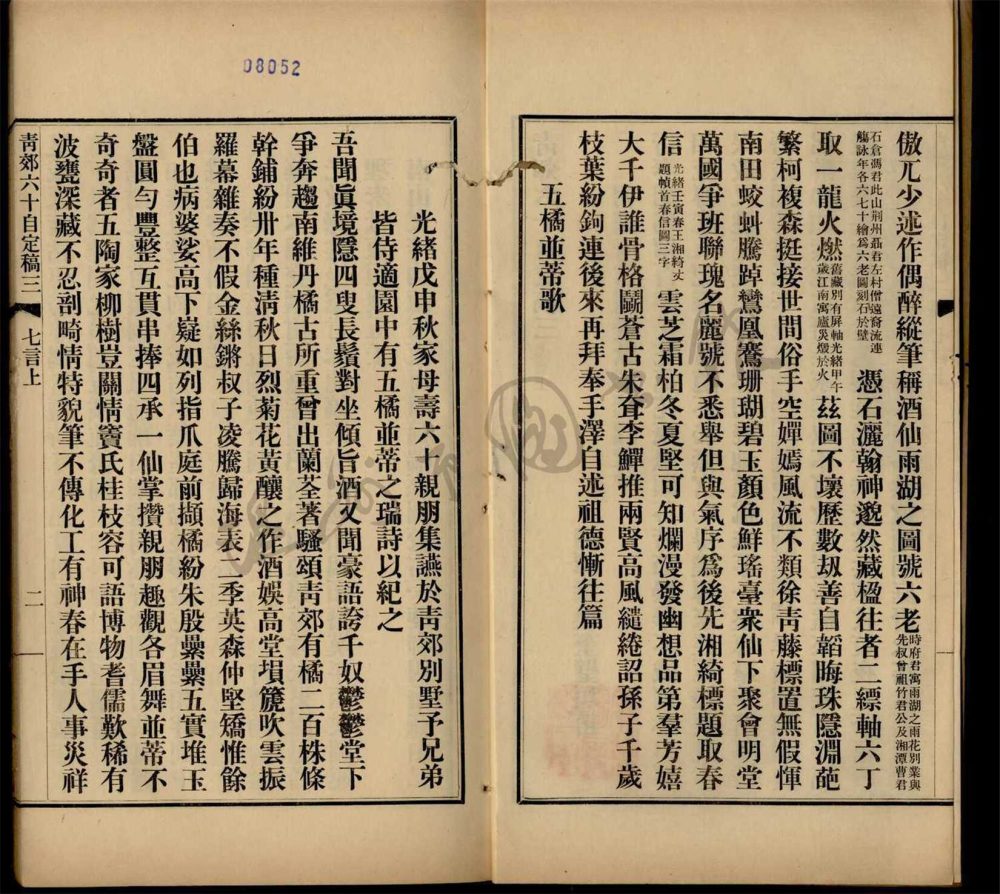 傲兀少述作偶醉縱筆稱酒仙雨湖之圖號六老時府君寓雨湖之雨花別業與先叔曾祖竹君公及湘潭曹君
石倉馮君此山荆州聶君左村僧遠裔流連觴詠年各六七十繪爲六老圖刻石於壁憑石灑翰神邈然藏楹往者二縹軸六丁
取一龍火燃舊藏別有屏軸光緒甲午歲江南寓廬災燬於火茲圖不壞歷數刼善自韜晦珠隱淵葩
繁柯複森挺接世間俗手空嬋嫣風流不類徐靑藤標置無假惲
南田蛟虯騰踔鸞凰鶱珊瑚碧玉顏色鮮瑤臺衆仙下聚會明堂
萬國爭班聯瑰名麗號不悉舉但與氣序爲後先湘綺標題取春
信光緒壬寅春王湘綺丈題幀首春信圖三字雲芝霜柏冬夏堅可知爛漫發幽想品第羣芳嬉
大千伊誰骨格鬭蒼古朱耷李鱓推兩賢高風繾綣詔孫子千歲
枝葉紛鉤連後來再拜奉手澤自述祖德慚往篇
五橘並蒂歌
光緒戊申秋家母壽六十親朋集讌於靑郊別墅予兄弟
皆侍適園中有五橘並蒂之瑞詩以紀之
吾聞眞境隱四叟長鬚對坐傾旨酒又聞豪語誇千奴鬱鬱堂下
爭奔趨南維丹橘古所重曾出蘭荃著騷頌靑郊有橘二百株條
幹鋪紛卅年種淸秋日烈菊花黃釀之作酒娛高堂塤篪吹雲振
羅幕雜奏不假金絲鏘叔子凌騰歸海表二季英森仲堅矯惟餘
伯也病婆娑高下疑如列指爪庭前擷橘紛朱殷纍纍五實堆玉
盤圓勻豐整互貫串捧四承一仙掌攢親朋趣觀各眉舞並蒂不
奇奇者五陶家柳樹豈關情竇氏桂枝容可語博物耆儒歎稀有
波甕深藏不忍剖畸情特貌筆不傳化工有神春在手人事災祥
靑郊六十自定稿三
七言上
二
08052